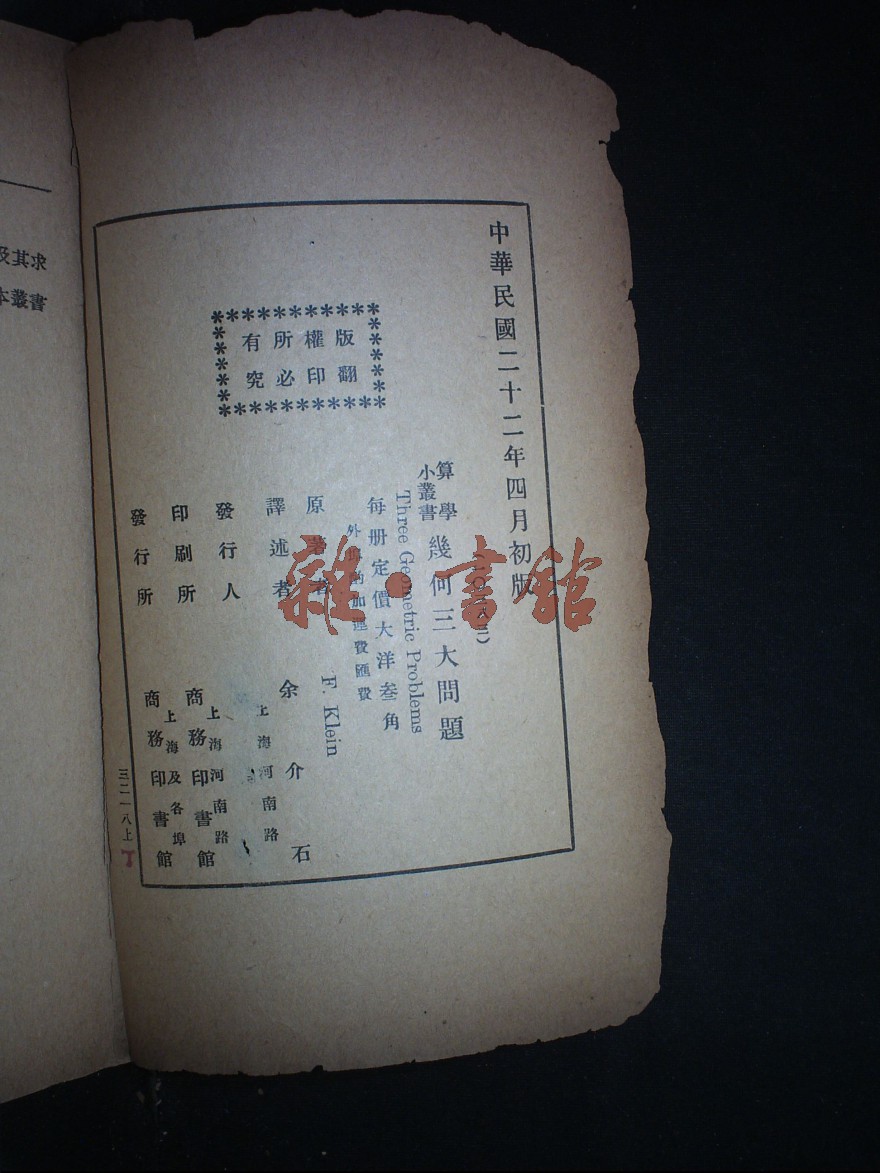 中華民國二十二年四月初版
算學小叢書
幾何三大問題
Three Geometric Problems
每册定價大洋叁角
外埠酌加運費匯費
版權所有
翻印必究
原著者 F. Klein
譯述者 余介石
發行人
上海河南路
印刷所
上海河南路
商務印書館
發行所
上海及各埠
商務印書館
三二一八上
丁
及其求
本叢書
雜·書館